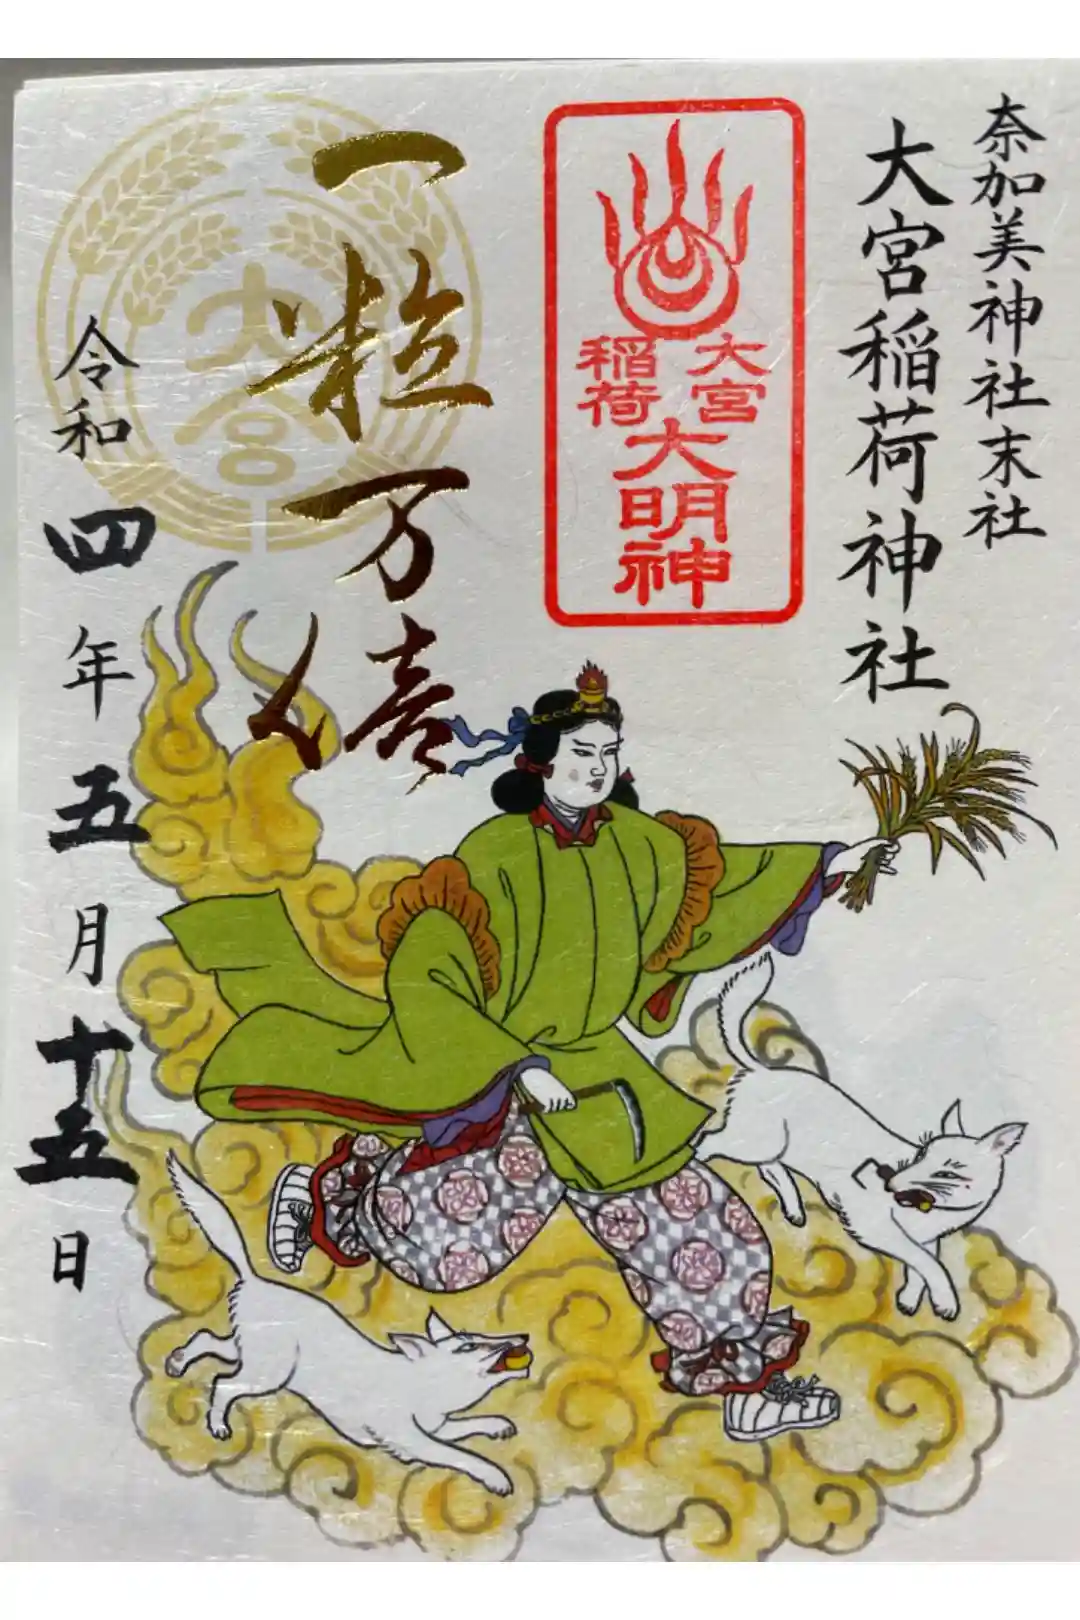 奈加美神社末社
大宮稲荷神社
大宮
稲荷
大明神
一粒万倍
大宮
令和四年五月十五日